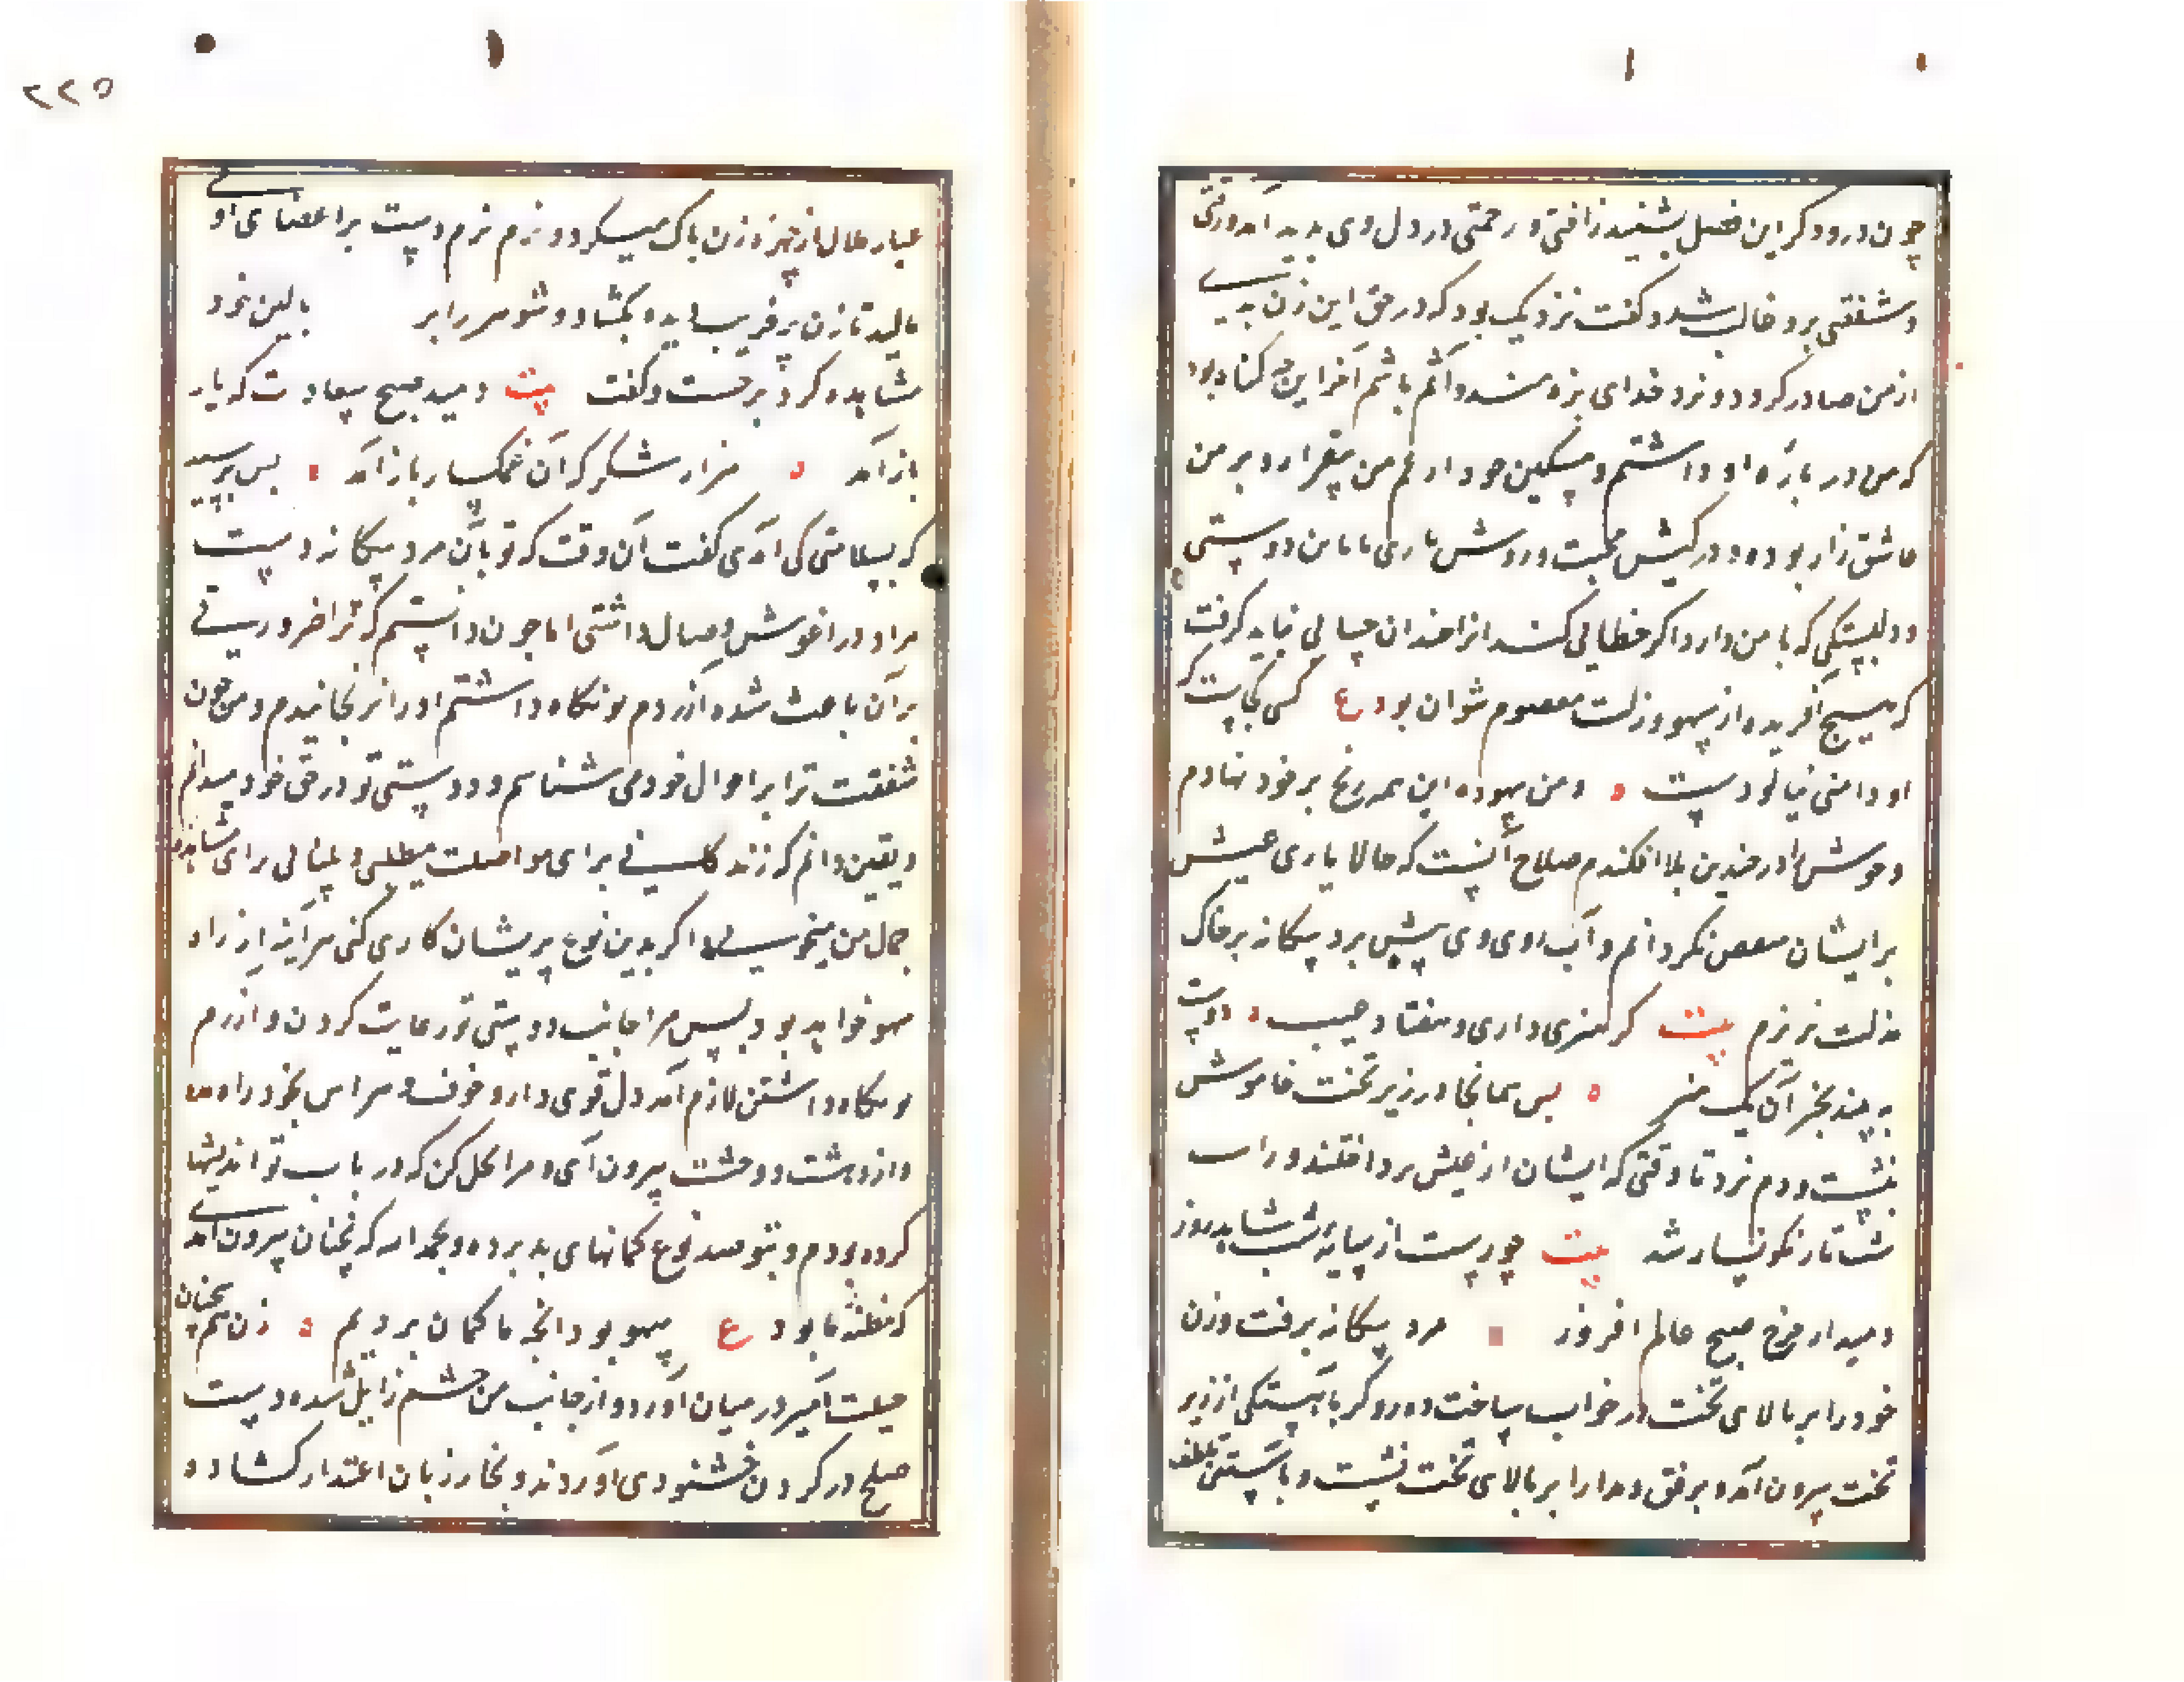 چون درودگر این فصل بشنید رأفتی و رحمتی در دل وی پدید آمد و رقتی
و شفقتی برو غالب شد و گفت نزدیک بود که در حق این زن بدی
از من صادر گردد و نزد خدای بزه‌مند و آثم باشم آخر این چه گمان بود
که من در باره او داشتم و مسکین خود از غم من بیقرار و بر من
عاشق زار بوده و در کیش محبت و روش یاری با من دوستی
و دلبستگی که با من دارد اگر خطایی کند از آن چندان حسابی نباید گرفت
که هیچ آفریده از سهو و زلت معصوم نتوان بود ع کسی کجاست که
او دامنی نیالودست و من بیهوده این همه رنج بر خود نهادم
و خوش را در چندین بلا افکندم صلاح آنست که حالا باری عیش
بر ایشان منغص نگردانم و آب روی وی پیش مرد بیگانه بر خاک
مذلت نریزم بیت گر هنری داری و هفتاد عیب دوست
نبیند بجز آن یک هنر پس همانجا در زیر تخت خاموش
بنشست و دم نزد تا وقتی که ایشان از عیش پرداختند و رایت
شب تار نگونسار شد بیت چو رست از سایه شب شاهد روز
دمید از مرغ صبح عالم افروز مرد بیگانه برفت و زن
خود را بر بالای تخت در خواب ساخت درودگر بآهستگی از زیر
تخت بیرون آمد و برفق و مدارا بر بالای تخت نشست و بآستین تلطف
غبار ملال از چهره زن پاک میکرد و نرم نرم دست بر اعضای او
مالید تا زن پرفریب دیده بگشاد و شوهر را بر بالین خود
مشاهده کرد برجست و گفت بیت دمید صبح سعادت که یار
باز آمد هزار شکر که آن غمگسار باز آمد پس پرسید
که بسلامتی کی آمدی گفت آن وقت که تو با آن مرد بیگانه دست
مراد در آغوش وصال داشتی اما چون دانستم که ترا ضرورتی
بر آن باعث شده آزرم تو نگاه داشتم او را نرنجانیدم و من چون
شفقت ترا بر احوال خود می شناسم و دوستی تو در حق خود میدانم
و یقین دانم که زندگانی برای مواصلت میطلبی و بینایی برای مشاهده
جمال من میخواهی اگر بدین نوع پریشان کاری کنی هر آینه از راه
سهو خواهد بود پس مرا جانب دوستی تو رعایت کردن و آزرم
تو نگاه داشتن لازم آمد دل قوی دار و خوف و هراس بخود راه مده
و از دهشت و وحشت بیرون آی و مرا بحل کن که در باب تو اندیشها
کرده بودم و بتو صد نوع گمانهای بد برده و بحمد الله که نچنان بیرون آمد
که مظنه ما بود ع سهو بود آنچه ما گمان بردیم زن هم سخنان
حیلت آمیز در میان آورد و از جانبین خشم زایل شده دست
صلح در گردن خشنودی آوردند و نجار زبان اعتذار گشاد و
۲۲۵